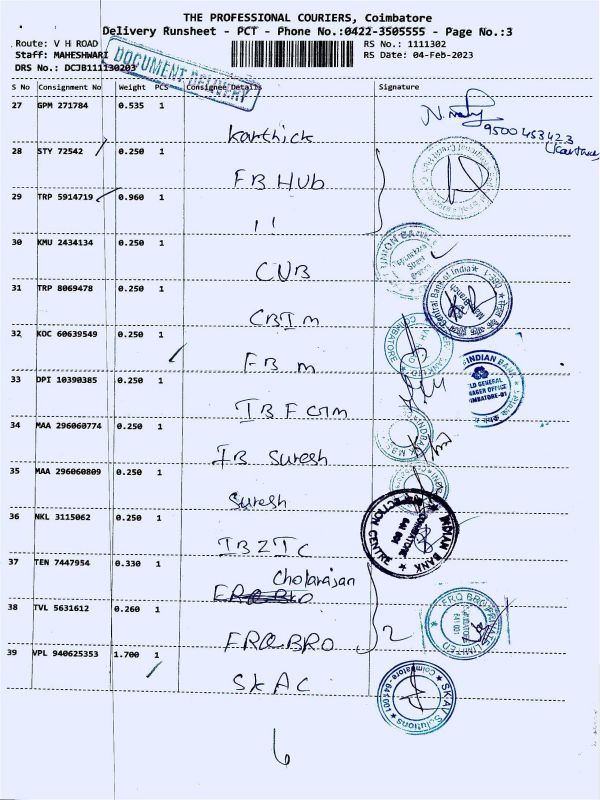 THE PROFESSIONAL COURIERS, Coimbatore
Delivery Runsheet - PCT - Phone No.:0422-3505555 - Page No.:3
Route: V H ROAD RS No.: 1111302
Staff: MAHESHWARI RS Date: 04-Feb-2023
DRS No.: DCJB111130203
DOCUMENT DELIVERY
S No Consignment No Weight PCS Consignee Details Signature
27 GPM 271784 0.535 1
Karthick
9500453423
28 STY 72542 0.250 1
FB HUb
29 TRP 5914719 0.960 1
11
30 KMU 2434134 0.250 1
CUB
31 TRP 8069478 0.250 1
CBIM
Central Bank of India
32 KOC 60639549 0.250 1
FB M
33 DPI 10390385 0.250 1
IBF GM
INDIAN BANK
34 MAA 296060774 0.250 1
IB Suresh
35 MAA 296060809 0.250 1
Suresh
36 NKL 3115062 0.250 1
IBZIC
INDIAN BANK
37 TEN 7447954 0.330 1
Cholarajan
38 TVL 5631612 0.260 1
FRQBRO
2
FRQ BRO PRIVATE LIMITED
39 VPL 940625353 1.700 1
SKAC
SKAV Solutions
Coimbatore-641001
6